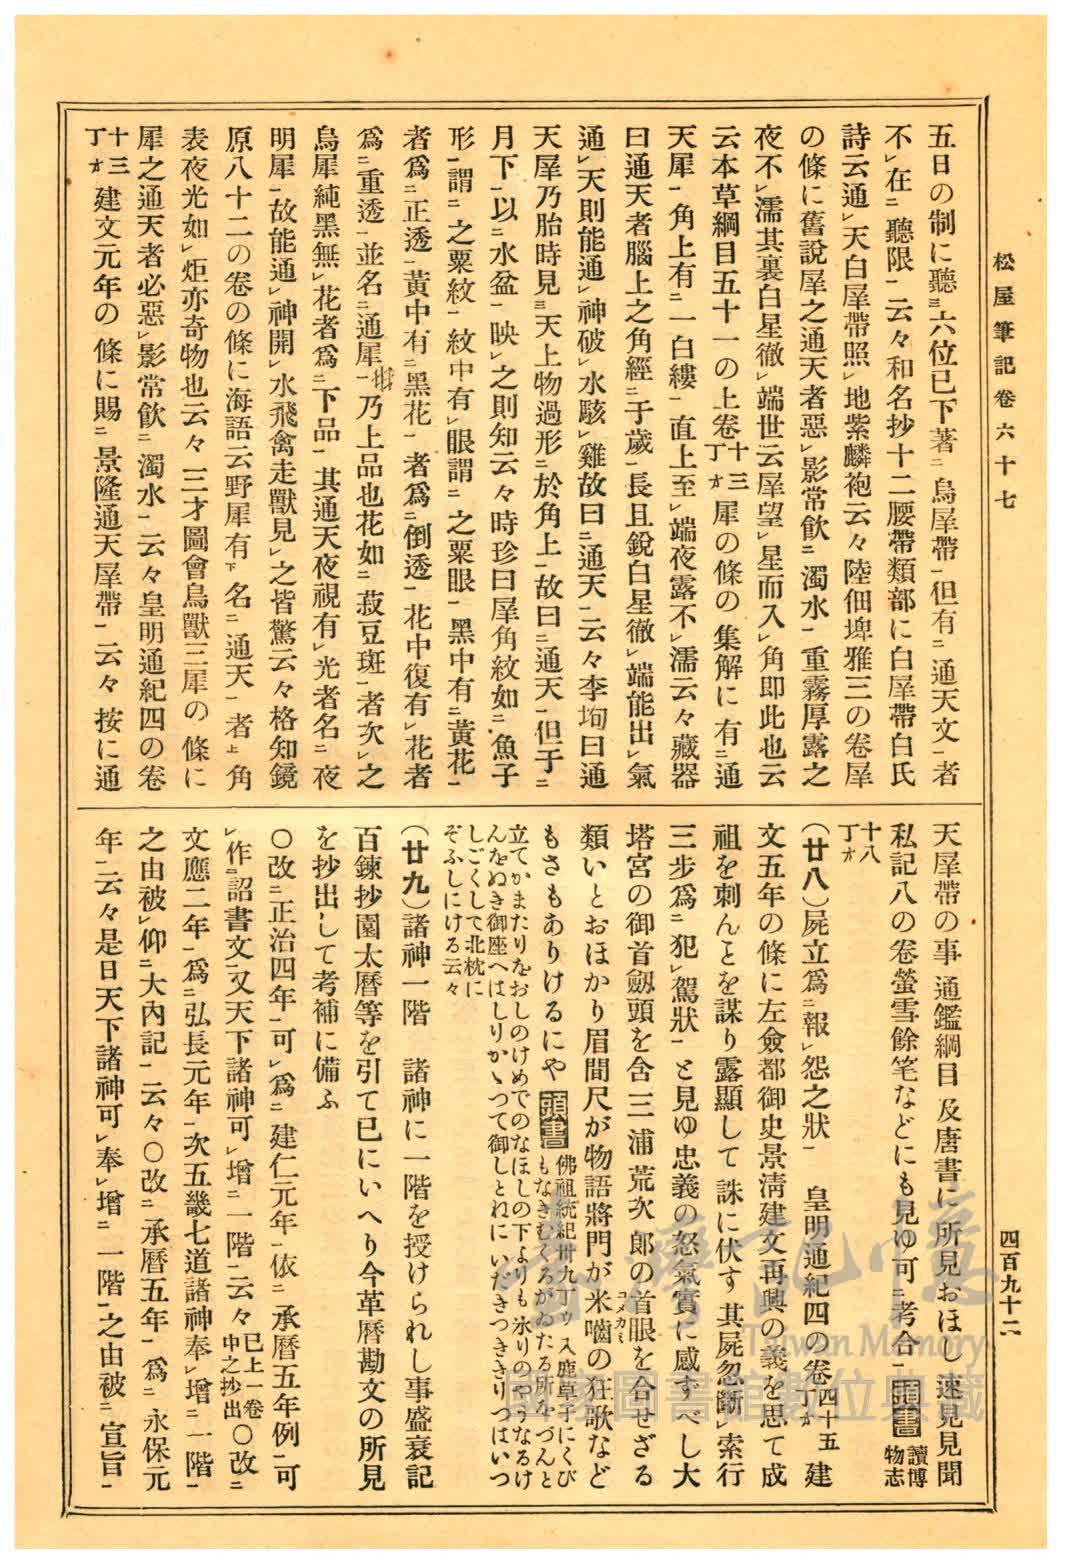 松屋筆記卷六十七
四百九十二
五日の制に聽㆔六位已下著㆓烏犀帶㆒但有㆓通天文㆒者
不㆑在㆓聽限㆒云々和名抄十二腰帶類部に白犀帶白氏
詩云通㆑天白犀帶照㆑地紫麟袍云々陸佃埤雅三の卷犀
の條に舊說犀之通天者惡㆑影常飮㆓濁水㆒重霧厚露之
夜不㆑濡其裏白星徹㆑端世云犀望㆑星而入㆑角即此也云
云本草綱目五十一の上卷十三丁オ犀の條の集解に有㆓通
天犀㆒角上有㆓一白縷㆒直上至㆑端夜露不㆑濡云々藏器
曰通天者腦上之角經㆓千歲㆒長且銳白星徹㆑端能出㆑氣
通㆑天則能通㆑神破㆑水駭㆑雞故曰㆓通天㆒云々李珣曰通
天犀乃胎時見㆔天上物過形㆓於角上㆒故曰㆓通天㆒但于㆓
月下㆒以㆓水盆㆒映㆑之則知云々時珍曰犀角紋如㆓魚子
形㆒謂㆓之粟紋㆒紋中有㆑眼謂㆓之粟眼㆒黑中有㆓黃花㆒
者爲㆓正透㆒黃中有㆓黑花㆒者爲㆓倒透㆒花中復有㆑花者
爲㆓重透㆒並名㆓通犀㆒乃上品也花如㆓菽豆斑㆒者次㆑之
烏犀純黑無㆑花者爲㆓下品㆒其通天夜視有㆑光者名㆓夜
明犀㆒故能通㆑神開㆑水飛禽走獸見㆑之皆驚云々格知鏡
原八十二の卷の條に海語云野犀有㆘名㆓通天㆒者㆖角
表夜光如㆑炬亦奇物也云々三才圖會鳥獸三犀の條に
犀之通天者必惡㆑影常飮㆓濁水㆒云々皇明通紀四の卷
十三丁オ建文元年の條に賜㆓景隆通天犀帶㆒云々按に通
天犀帶の事通鑑綱目及唐書に所見おほし速見見聞
私記八の卷螢雪餘笔などにも見ゆ可㆓考合㆒頭書讀博物志
十八丁オ
(廿八)屍立爲㆓報㆑怨之狀㆒　皇明通紀四の卷四十五丁オ建
文五年の條に左僉都御史景淸建文再興の義を思て成
祖を刺んとを謀り露顯して誅に伏す其屍忽斷㆑索行
三步爲㆓犯㆑駕狀㆒と見ゆ忠義の怒氣實に感ずべし大
塔宮の御首劔頭を含三浦荒次郎の首眼を合せざる
類いとおほかり眉間尺が物語將門が米嚙コメカミの狂歌など
もさもありけるにや頭書佛祖統紀卅九丁ウ入鹿草子にくび
もなきむくろがゐたる所をづんと
立てかまたりをおしのけめでのなほしの下よりも氷りのやうなるけ
んをぬき御座へはしりかゝつて御しとねにいだきつききりつはいつ
しごくして北枕に
ぞふしにける云々
(廿九)諸神一階　諸神に一階を授けられし事盛衰記
百鍊抄園太曆等を引て已にいへり今革曆勘文の所見
を抄出して考補に備ふ
○改㆓正治四年㆒可㆑爲㆓建仁元年㆒依㆓承曆五年例㆒可
㆑作㆓詔書文㆒又天下諸神可㆑增㆓一階㆒云々已上一卷中之抄出○改㆓
文應二年㆒爲㆓弘長元年㆒次五畿七道諸神奉㆑增㆓一階㆒
之由被㆑仰㆓大內記㆒云々○改㆓承曆五年㆒爲㆓永保元
年㆒云々是日天下諸神可㆑奉㆑增㆓一階㆒之由被㆓宣旨㆒
臺灣記憶
Taiwan Memory
國家圖書館數位典藏